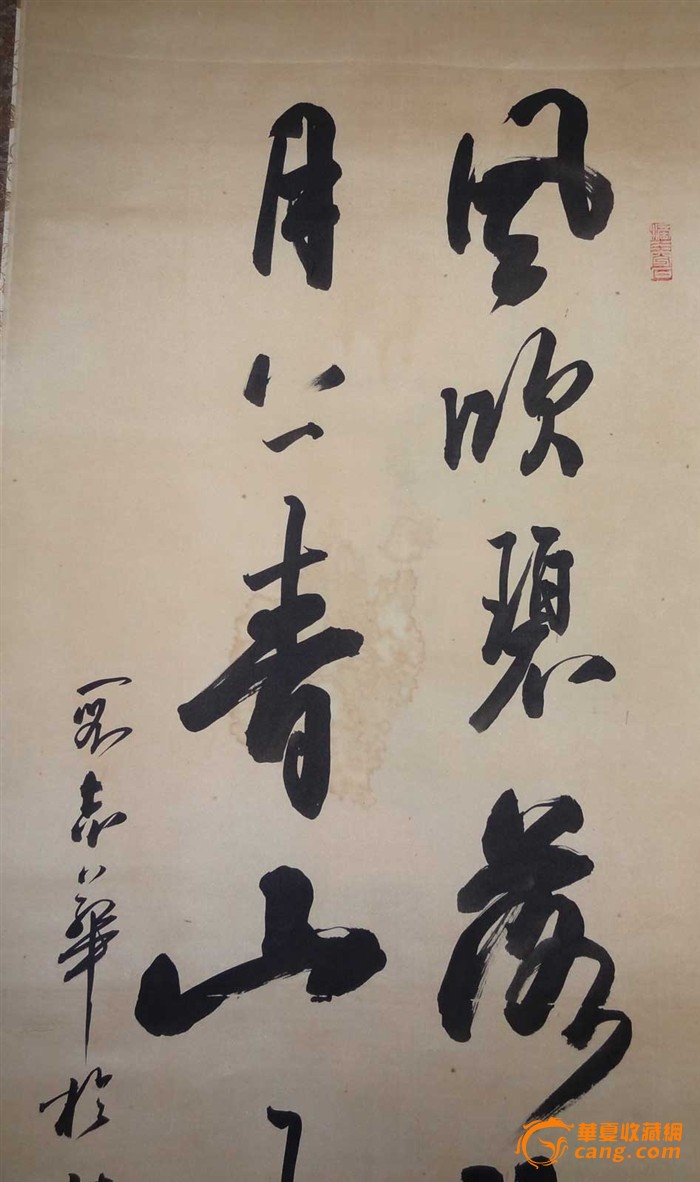 風吹碧落
月上青山
華於
華夏收藏網
cang.com